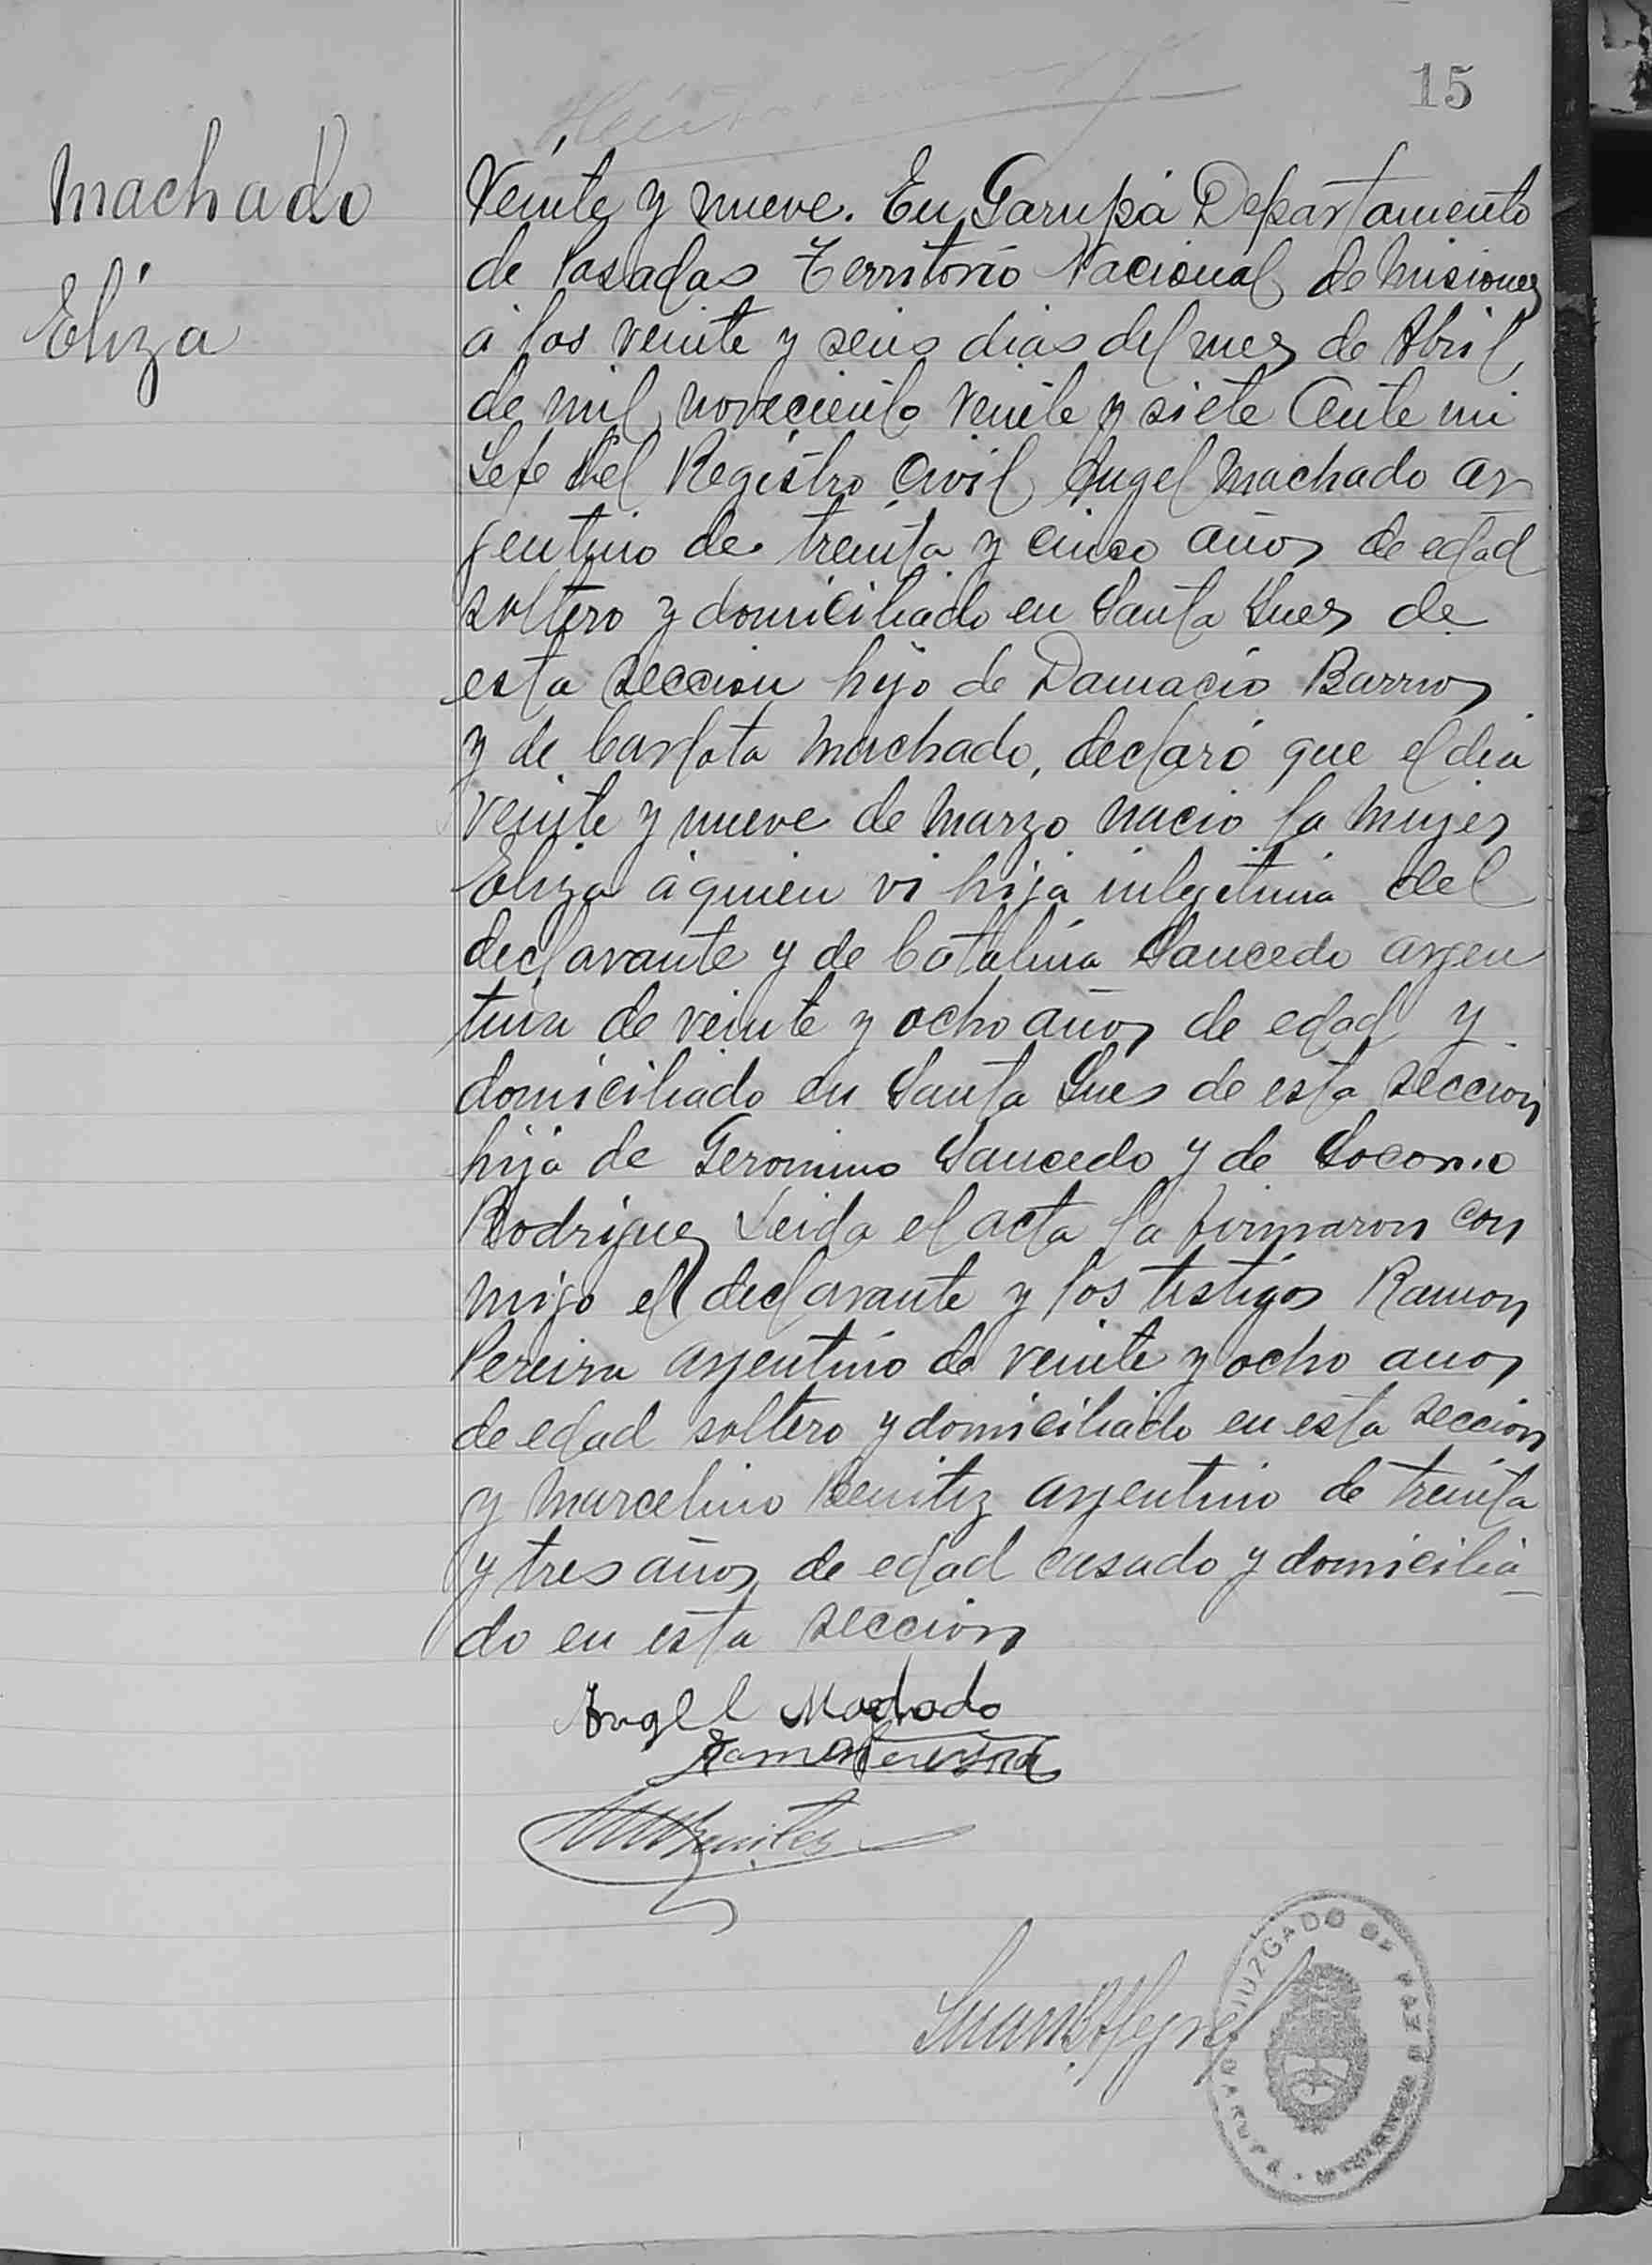 15
Machado
Eliza
Veinte y nueve. En Garupá Departamento
de Posadas Territorio Nacional de Misiones
á los veinte y seis dias del mes de Abril
de mil noveciento veinte y siete Ante mi
Jefe del Registro Civil Angel Machado ar
gentino de treinta y cinco años de edad
soltero y domiciliado en Santa Ines de
esta seccion hijo de Damacio Barrios
y de Carlota Machado, declaró que el dia
veinte y nueve de Marzo nacio la mujer
Eliza á quien vi hija inlegitima del
declarante y de Catalina Saucedo argen
tina de veinte y ocho años de edad y
domiciliado en Santa Ines de esta seccion
hija de Geronimo Saucedo y de Socorro
Rodriguez Leida el acta la firmaron con
migo el declarante y los testigos Ramon
Pereira argentino de veinte y ocho anos
de edad soltero y domiciliado en esta seccion
y Marcelino Benitez argentino de treinta
y tres años de edad casado y domicilia
do en esta seccion
Angel Machado
Ramon Pereira
Benites
Juan B.
JUZGADO DE PAZ
GARUPA
MISIONES